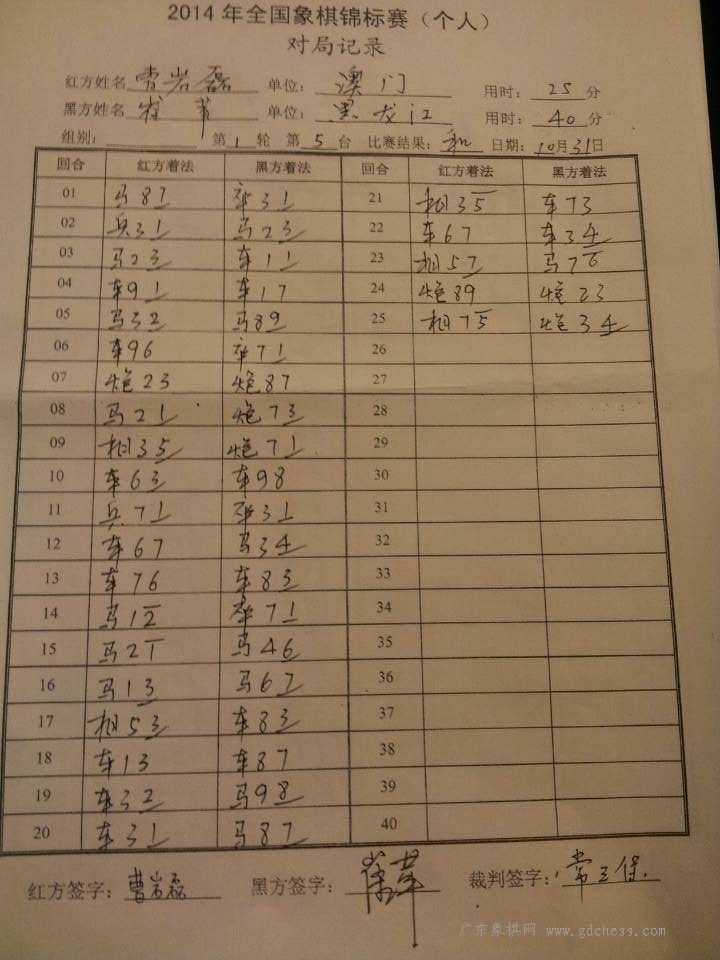 2014 年全国象棋锦标赛（个人）
对局记录
红方姓名 曹岩磊 单位： 澳门 用时： 25 分
黑方姓名 单位： 黑龙江 用时： 40 分
组别： 第 1 轮 第 5 台 比赛结果： 和 日期： 10月31日
回合 红方着法 黑方着法 回合 红方着法 黑方着法
01 马87 卒31 21 相35 车73
02 兵31 马23 22 车67 车34
03 马23 车11 23 相57 马76
04 车91 车17 24 炮89 炮23
05 马32 马89 25 相75 炮34
06 车96 卒71 26
07 炮23 炮87 27
08 马21 炮73 28
09 相35 炮71 29
10 车63 车98 30
11 兵71 卒31 31
12 车67 马34 32
13 车76 车83 33
14 马12 卒71 34
15 马21 马46 35
16 马13 马67 36
17 相53 车83 37
18 车13 车87 38
19 车32 马98 39
20 车31 马87 40
红方签字： 曹岩磊 黑方签字： 裁判签字： 常玉保
广东象棋网 www.gdchess.com